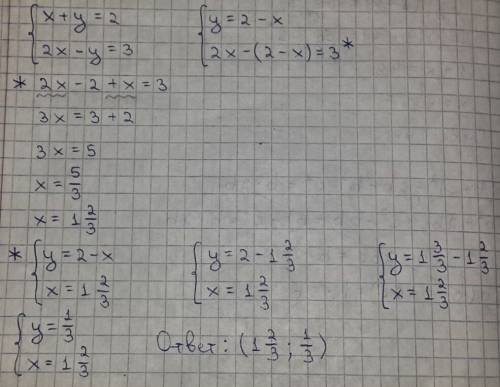 {x + y = 2
{2x - y = 3
{y = 2 - x
{2x - (2 - x) = 3 *
* 2x - 2 + x = 3
3x = 3 + 2
3x = 5
x = 5/3
x = 1 2/3
* {y = 2 - x
{x = 1 2/3
{y = 2 - 1 2/3
{x = 1 2/3
{y = 1 3/3 - 1 2/3
{x = 1 2/3
{y = 1/3
{x = 1 2/3
Ответ: (1 2/3 ; 1/3)